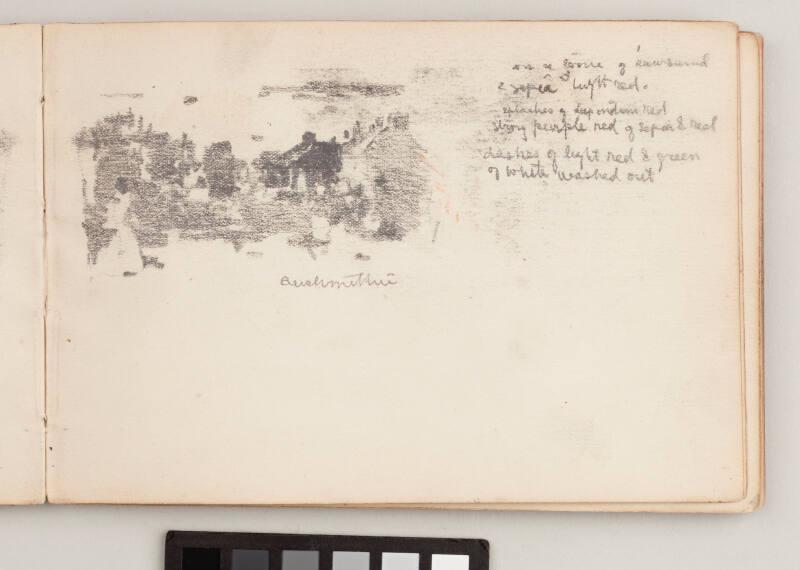 on a tone of raw sienna
& sepia & light red.
splashes of red
strong purple red of sepia & red
dashes of light red & green
of white washed out